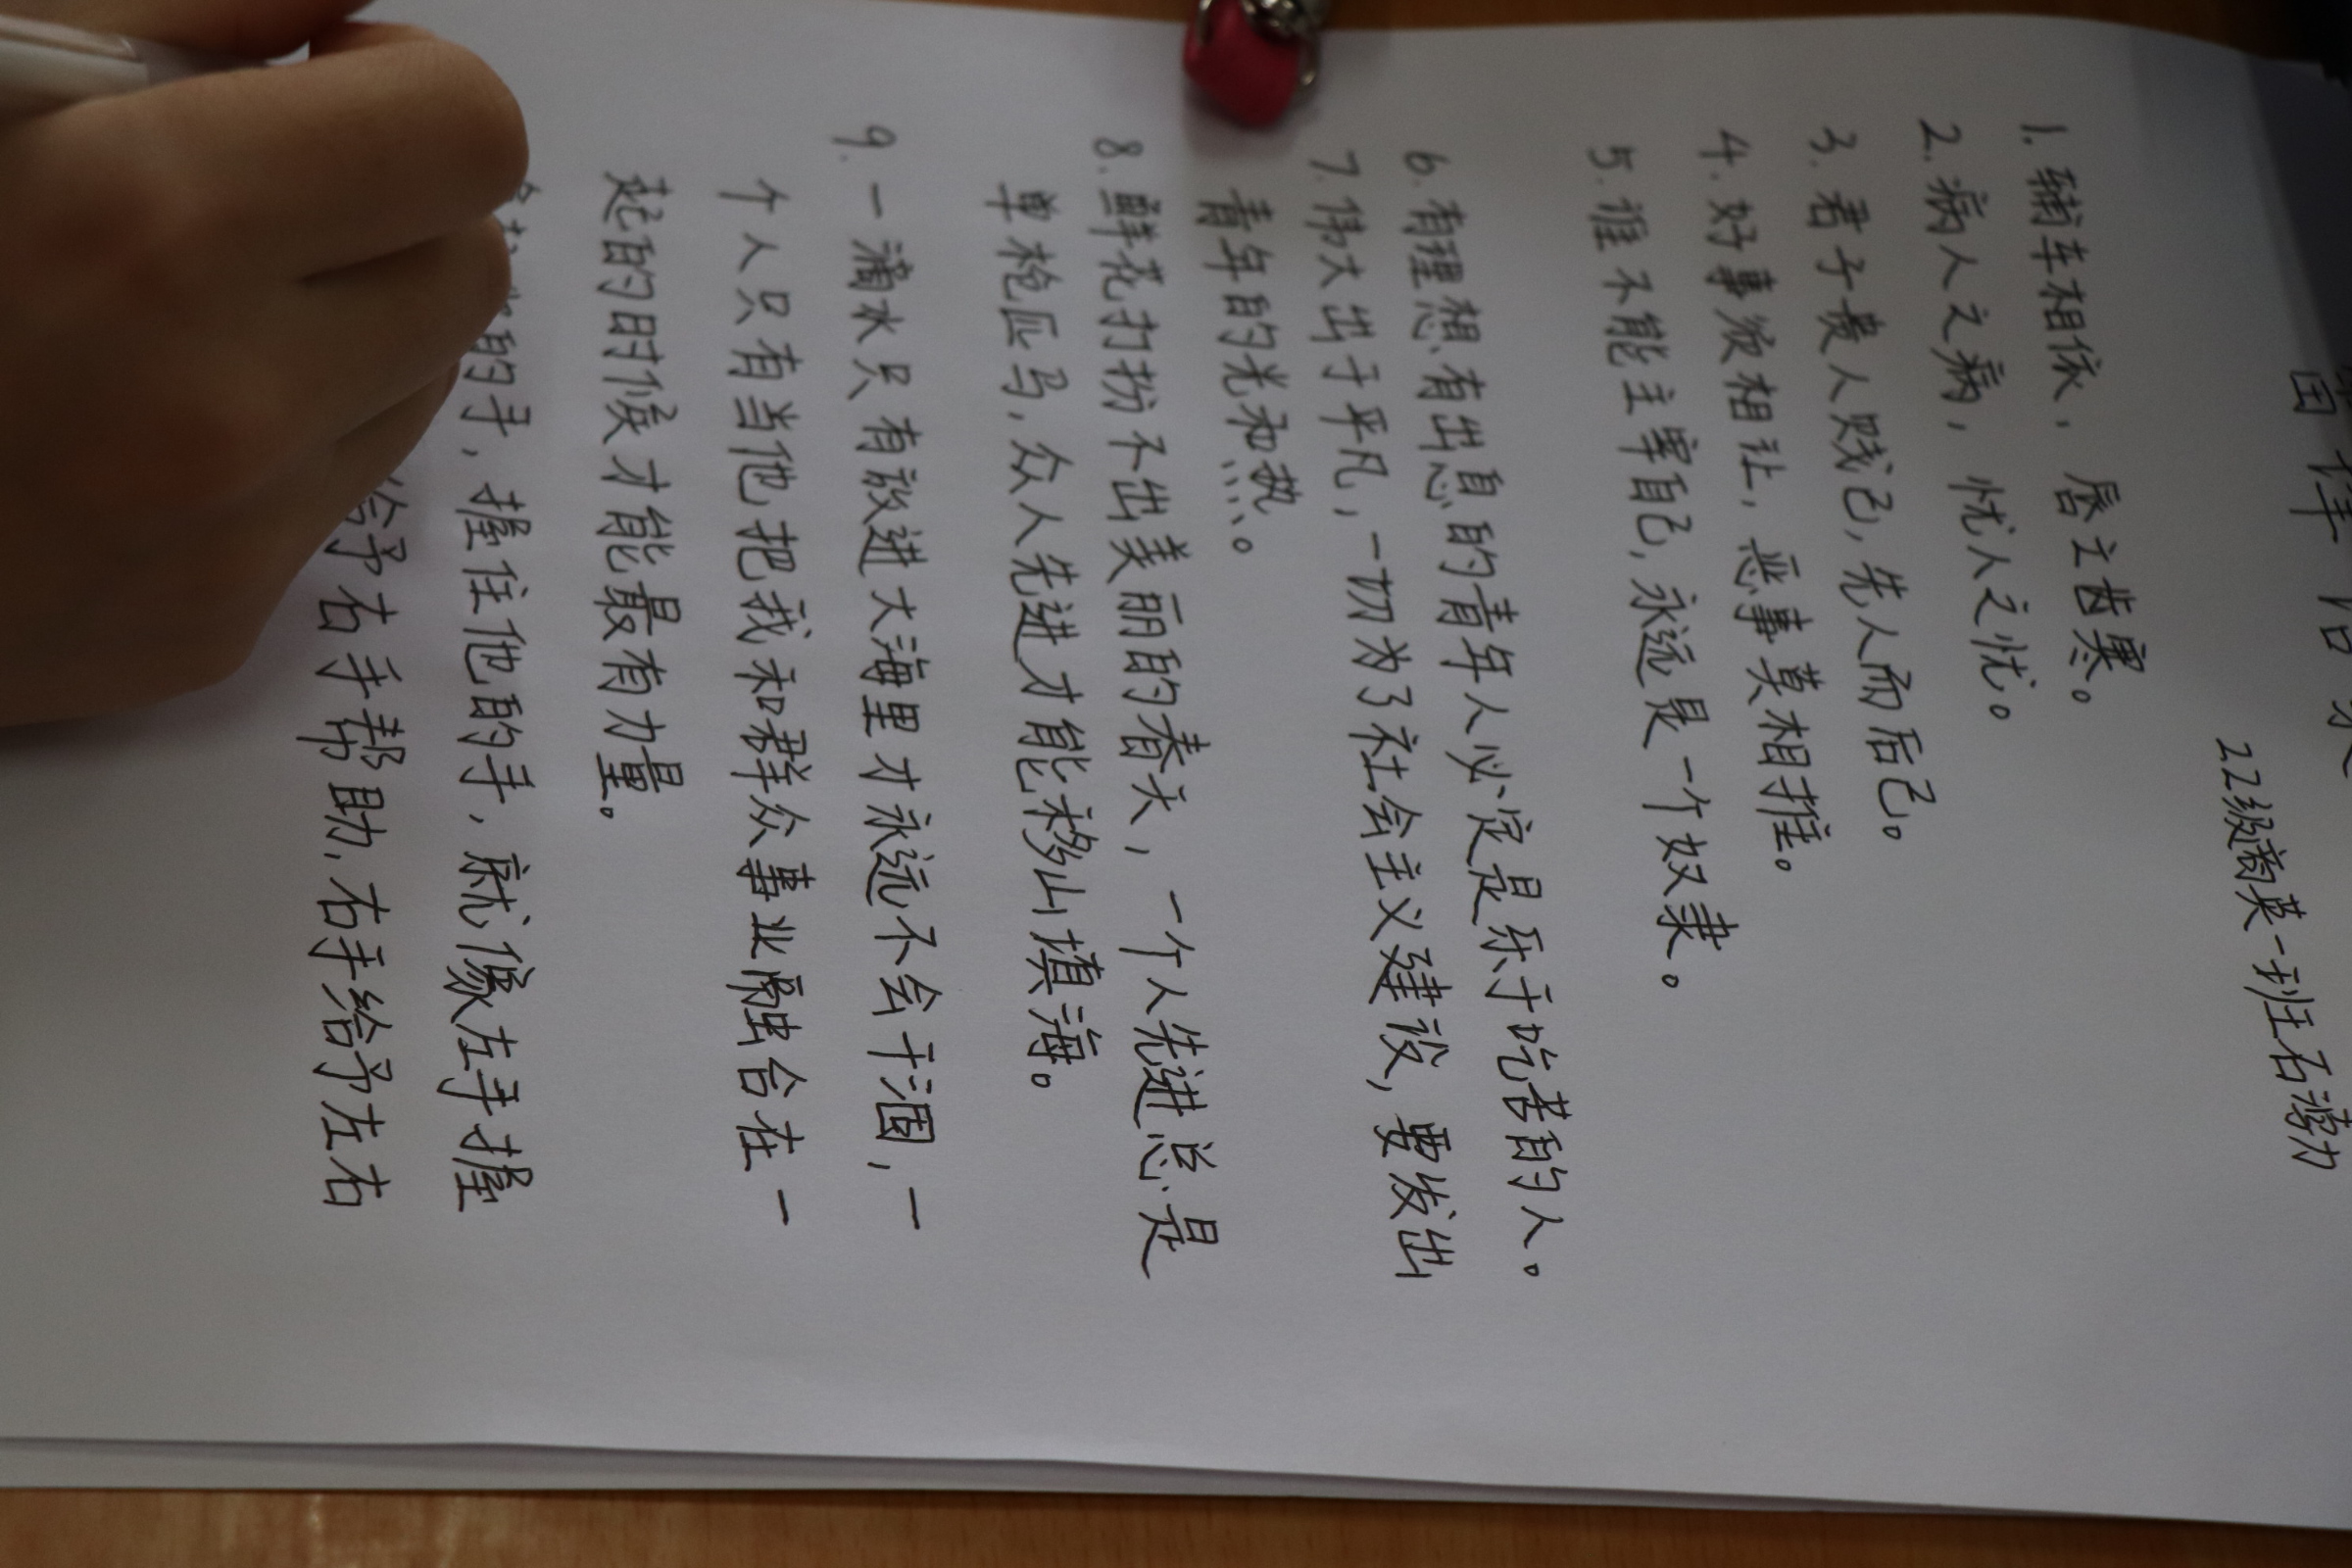 22级商英一班石漪力
1.辅车相依，唇立齿寒。
2.病人之病，忧人之忧。
3.君子贵人贱己，先人而后己。
4.好事须相让，恶事莫相推。
5.谁不能主宰自己，永远是一个奴隶。
6.有理想有出息的青年人必定是乐于吃苦的人。
7.伟大出于平凡，一切为了社会主义建设，要发出
青年的光和热…。
8.鲜花打扮不出美丽的春天，一个人先进总是
单枪匹马，众人先进才能移山填海。
9.一滴水只有放进大海里才永远不会干涸，一
个人只有当他把我和群众事业融合在一
起的时候才能最有力量。
的手，握住他的手，就像左手握
给予右手帮助，右手给予左右